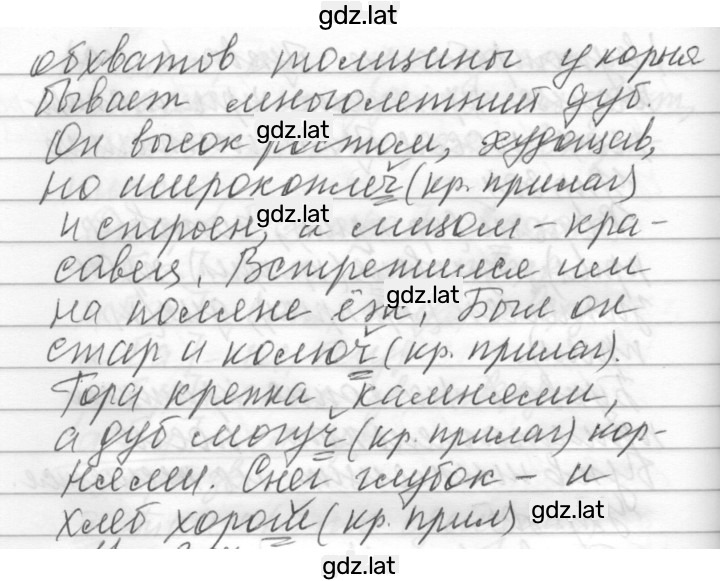 gdz.lat
обхватов толщины у корня
бывает многолетний дуб.
gdz.lat
Он высок ростом, худощав,
но широкоплеч (кр. прилаг)
gdz.lat
и строен, а лицом - кра-
савец. Встретился им
gdz.lat
на поляне ёж. Был он
стар и колюч (кр. прилаг).
Гора крепка камнями,
а дуб могуч (кр. прилаг) кор-
нями. Снег глубок - и
хлеб хорош (кр. прил)
gdz.lat
gdz.lat